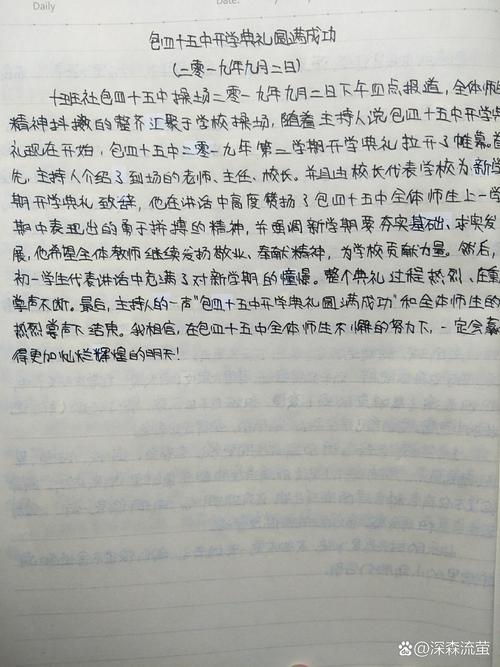 Daily
Date:
包四十五中开学典礼圆满成功
(二零一九年九月二日)
十班社包四十五中操场二零一九年九月二日下午四点报道，全体师
精神抖擞的整齐汇聚于学校操场，随着主持人说包四十五中开学典
礼现在开始，包四十五中二零一九年第二学期开学典礼拉开了帷幕。首
先，主持人介绍了到场的老师、主任、校长。并且由校长代表学校为新学
期开学典礼致辞，他在讲话中高度赞扬了包四十五中全体师生上一学
期中表现出的勇于拼搏的精神，并强调新学期要夯实基础、求实发
展，他希望全体教师继续发扬敬业、奉献精神，为学校贡献力量。然后，
初一学生代表讲话中充满了对新学期的憧憬。整个典礼过程热烈、庄重
掌声不断。最后，主持人的一声"包四十五中开学典礼圆满成功"和全体师生的
热烈掌声下结束。我相信，在包四十五中全体师生不懈的努力下，一定会赢
得更加灿烂辉煌的明天！
@深森流萤